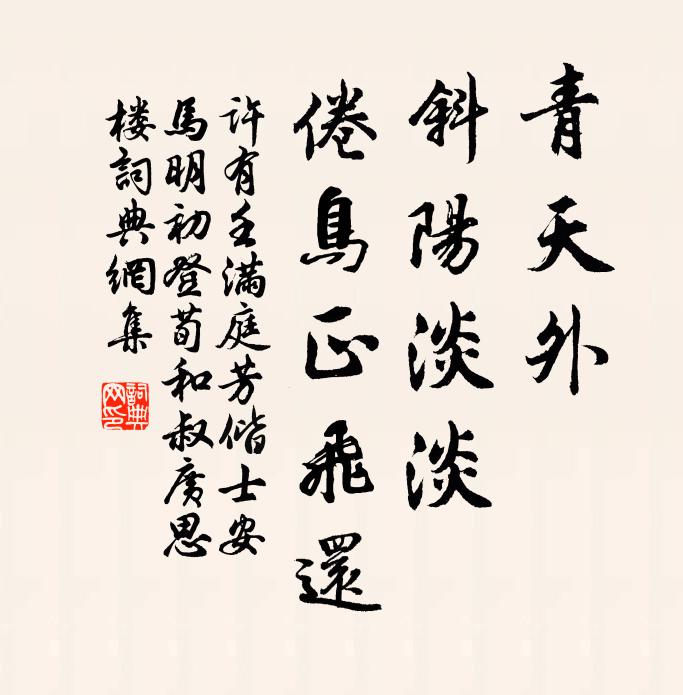 青天外
斜陽淡淡
倦鳥正飛還
許有壬滿庭芳偕士安
馬明初登荀和叔廣思
楼詞典網集
詞典
网印